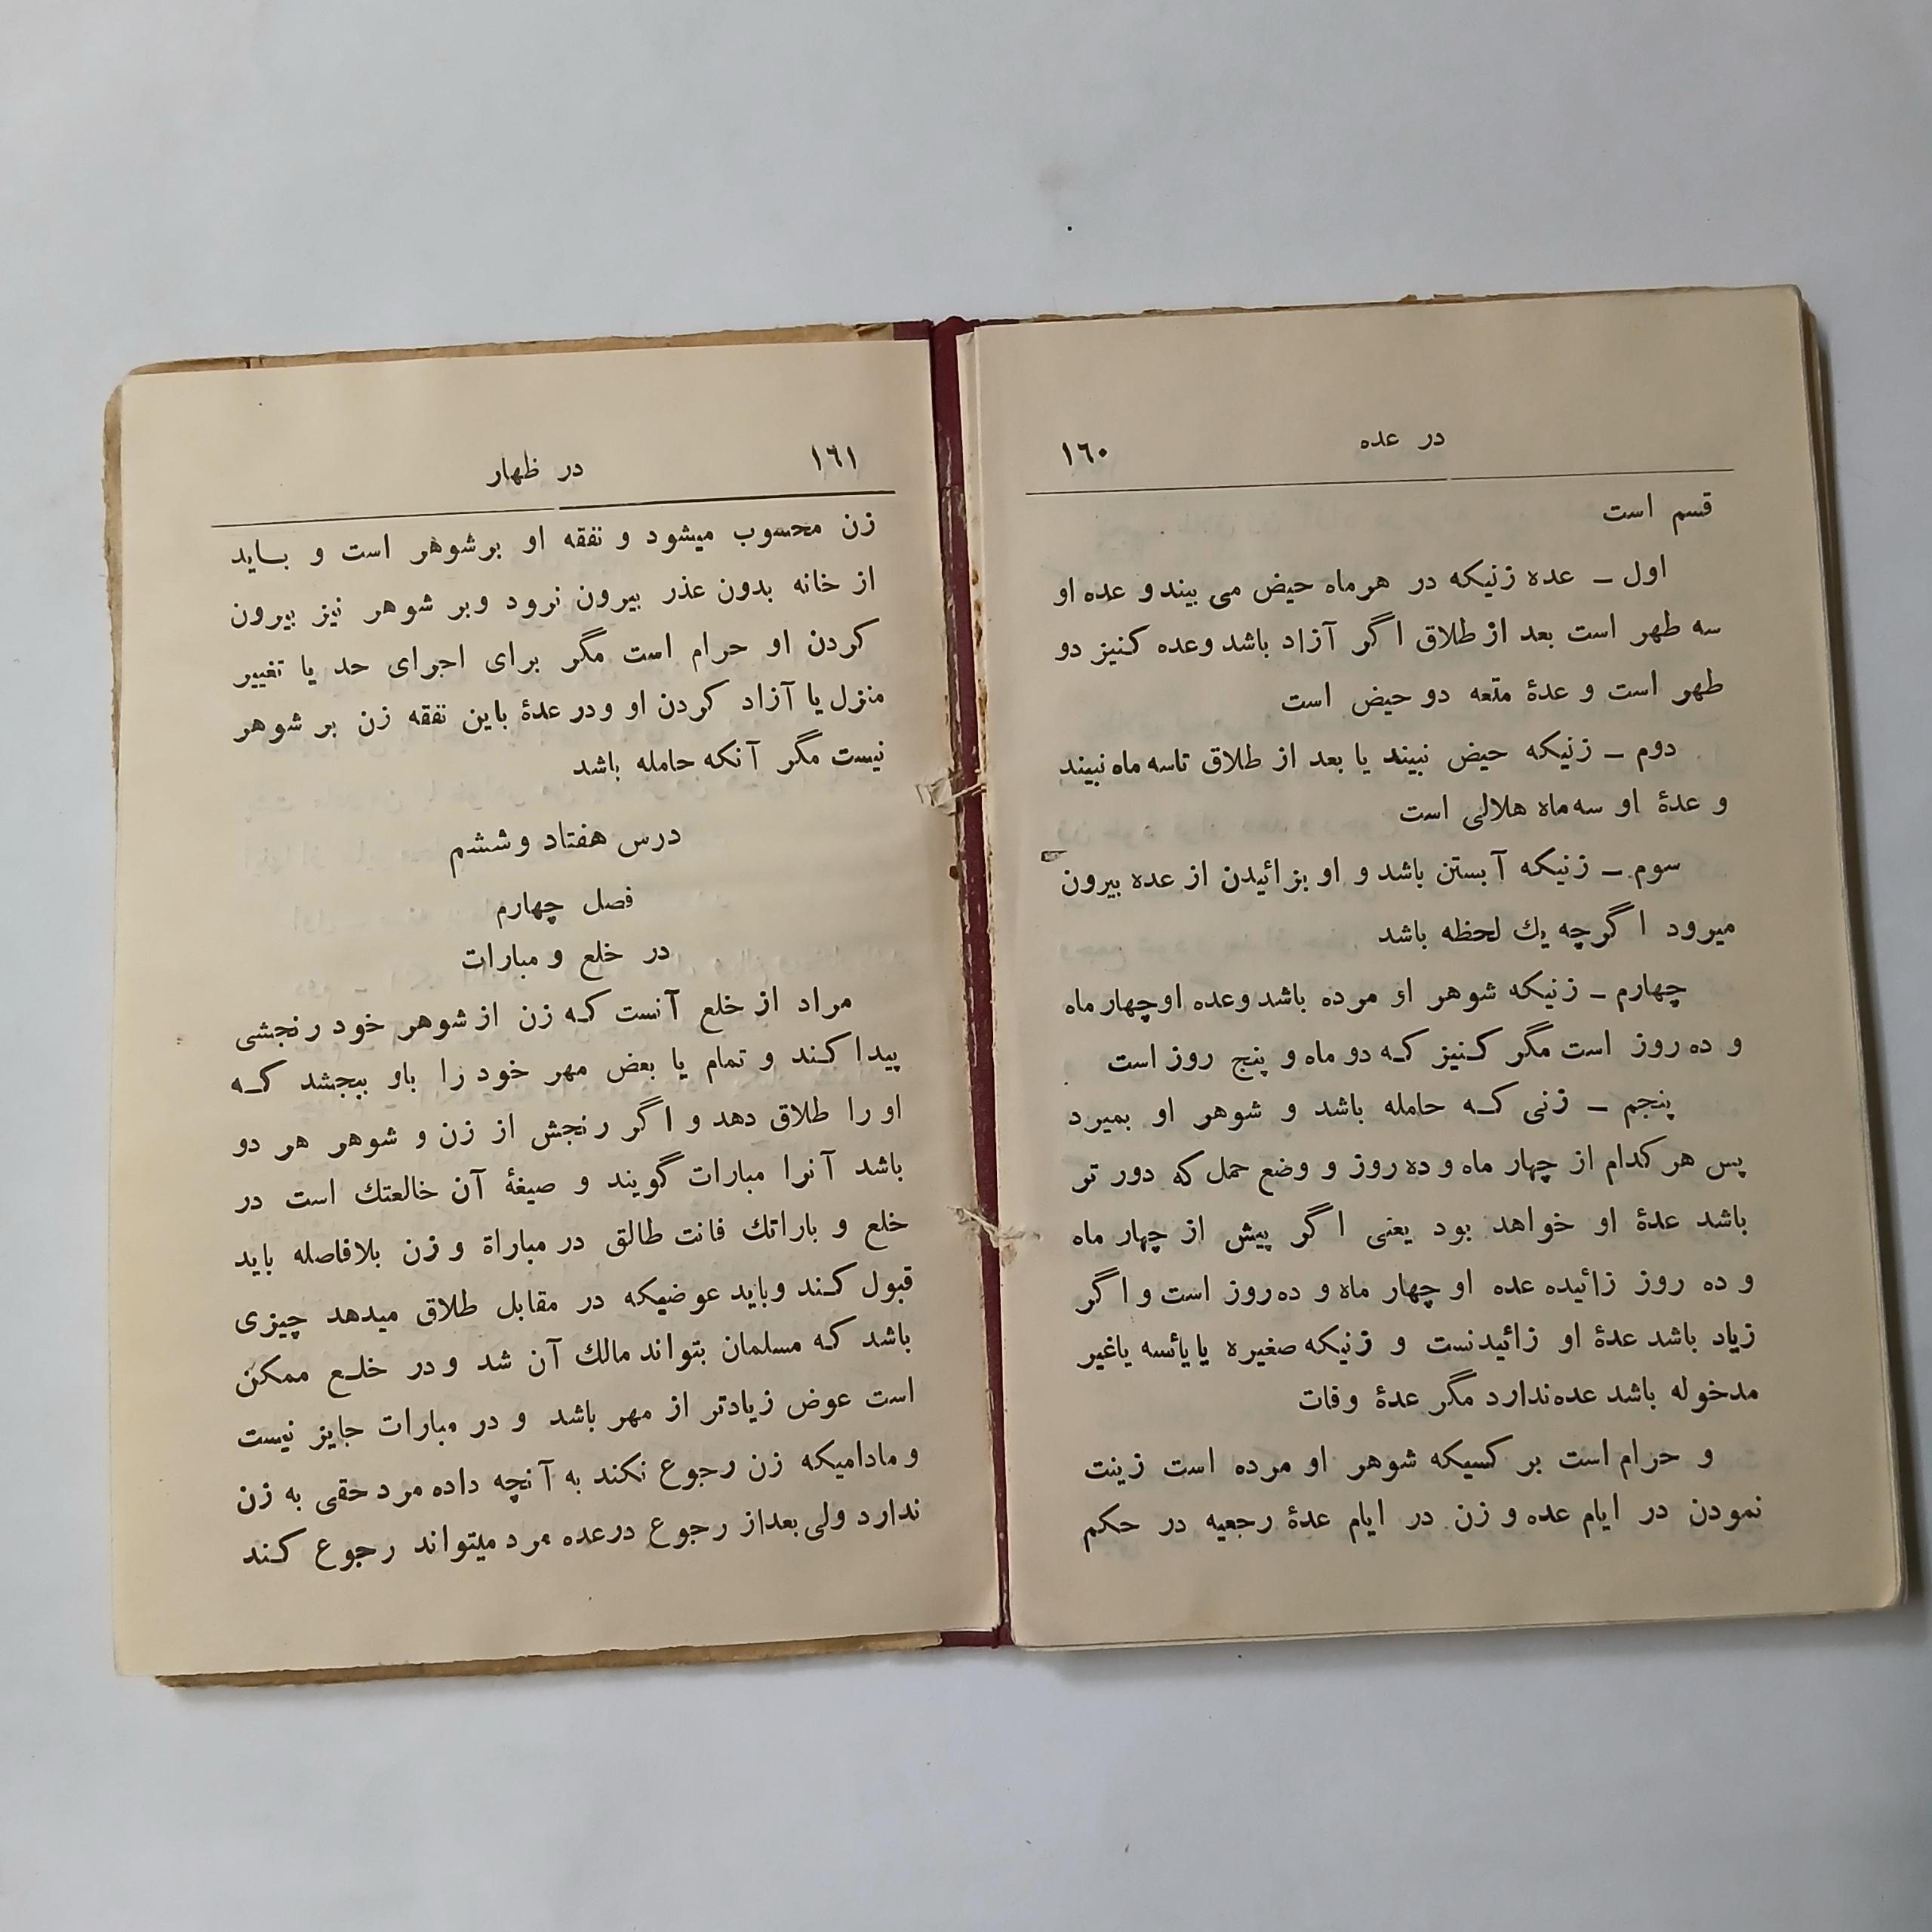 در عده ١٦٠
قسم است
اول ـ عده زنیکه در هرماه حیض می بیند و عده او
سه طهر است بعد از طلاق اگر آزاد باشد وعده کنیز دو
طهر است و عدۀ متعه دو حیض است
دوم ـ زنیکه حیض نبیند یا بعد از طلاق تاسه ماه نبیند
و عدۀ او سه ماه هلالی است
سوم ـ زنیکه آبستن باشد و او بزائیدن از عده بیرون
میرود اگرچه یك لحظه باشد
چهارم ـ زنیکه شوهر او مرده باشد وعده اوچهار ماه
و ده روز است مگر کنیز که دو ماه و پنج روز است
پنجم ـ زنی که حامله باشد و شوهر او بمیرد
پس هر کدام از چهار ماه و ده روز و وضع حمل که دور تر
باشد عدۀ او خواهد بود یعنی اگر پیش از چهار ماه
و ده روز زائیده عده او چهار ماه و ده روز است و اگر
زیاد باشد عدۀ او زائیدنست و زنیکه صغیره یا یائسه یاغیر
مدخوله باشد عده ندارد مگر عدۀ وفات
و حرام است بر کسیکه شوهر او مرده است زینت
نمودن در ایام عده و زن در ایام عدۀ رجعیه در حکم
در ظهار ١٦١
زن محسوب میشود و نفقه او برشوهر است و باید
از خانه بدون عذر بیرون نرود وبر شوهر نیز بیرون
کردن او حرام است مگر برای اجرای حد یا تغییر
منزل یا آزاد کردن او ودر عدۀ باین نفقه زن بر شوهر
نیست مگر آنکه حامله باشد
درس هفتاد و ششم
فصل چهارم
در خلع و مبارات
مراد از خلع آنست که زن از شوهر خود رنجشی
پیدا کند و تمام یا بعض مهر خود را باو ببخشد که
او را طلاق دهد و اگر رنجش از زن و شوهر هر دو
باشد آنرا مبارات گویند و صیغۀ آن خالعتك است در
خلع و باراتك فانت طالق در مباراة و زن بلافاصله باید
قبول کند وباید عوضیکه در مقابل طلاق میدهد چیزی
باشد که مسلمان بتواند مالك آن شد ودر خلع ممکن
است عوض زیادتر از مهر باشد و در مبارات جایز نیست
و مادامیکه زن رجوع نکند به آنچه داده مرد حقی به زن
ندارد ولی بعداز رجوع درعده مرد میتواند رجوع کند